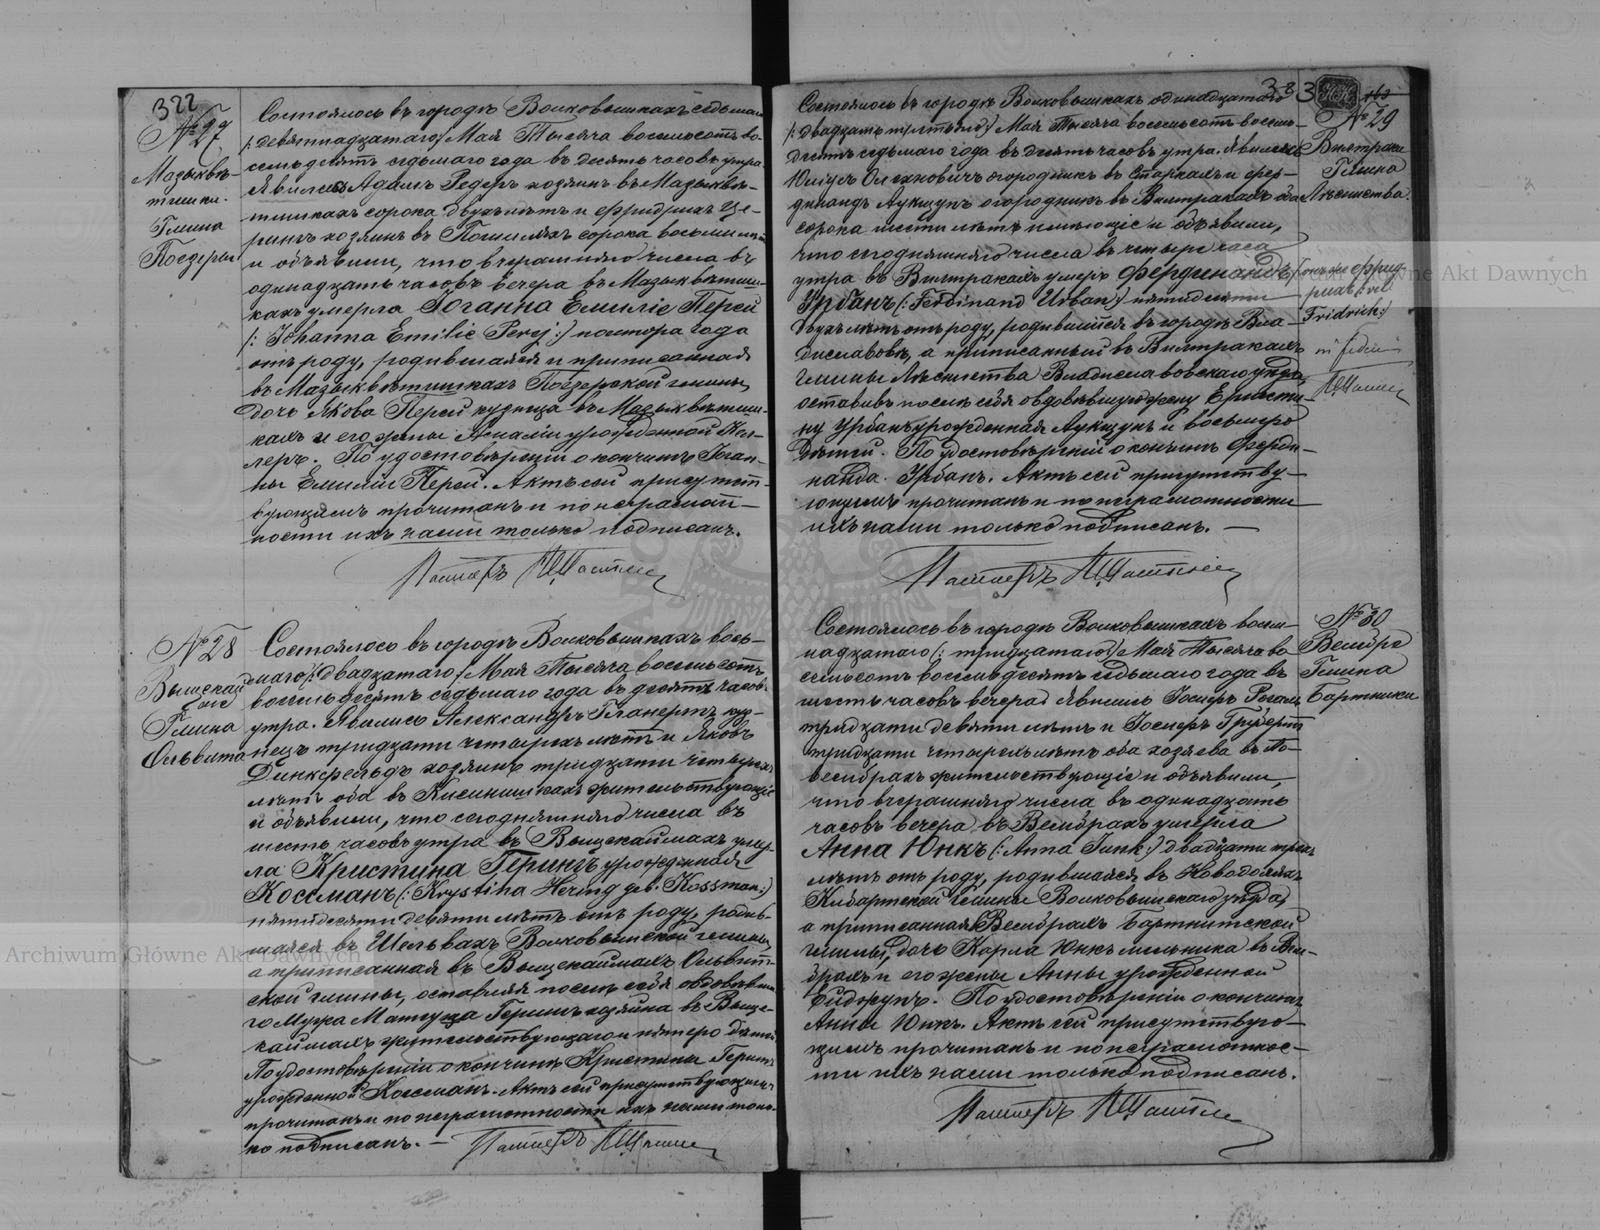 322
№ 27.
Мазыквѣ-
тишки.
Гмина
Поезеры
Состоялось въ городѣ Волковышкахъ седьмаго
/: девятнадцатаго/ Мая Тысяча восемьсотъ во-
семьдесятъ седьмаго года въ десять часовъ утра
Явились Адамъ Редеръ хозяинъ въ Мазыквѣ-
тишкахъ сорока двухъ лѣтъ и Фридрихъ Ге-
рингъ хозяинъ въ сорока восьми лѣтъ
и объявили, что вчерашняго числа въ
одинадцать часовъ вечера въ Мазыквѣтиш-
кахъ умерла Іоганна Емилія Перей
/: Johanna Emilie Perej :/ полтора года
отъ роду, родившаяся и приписанная
въ Мазыквѣтишкахъ Поезерской гмины,
дочь Якова Перей кузнеца въ Мазыквѣтиш-
кахъ и его жены урожденной Кел-
леръ. По удостовѣреніи о кончинѣ Іоган-
ны Емиліи Перей. Актъ сей присутст-
вующимъ прочитанъ и по неграмот-
ности ихъ нами только подписанъ.
Пасторъ
№ 28
Выщекай
Гмина
Ольвита
Состоялось въ городѣ Волковышкахъ вось-
маго /: двадцатаго / Мая Тысяча восемьсотъ
восемьдесятъ седьмаго года въ десять часовъ
утра. Явились Александръ Планертъ куз-
нецъ тридцати четырехъ лѣтъ и Яковъ
Динкфельдъ хозяинъ тридцати четырехъ
лѣтъ оба въ жительствующіе
и объявили, что сегодняшняго числа въ
шесть часовъ утра въ Выщекаймахъ умер-
ла Кристина Герингъ урожденная
Коссманъ (: Krystina Hering geb. Kossman :)
пятидесяти девяти лѣтъ отъ роду, родив-
шаяся въ Шельвахъ Волковышской гмины,
а приписанная въ Выщекаймахъ Ольвит-
ской гмины, оставляя послѣ себя овдовѣвша-
го мужа Матеуша Герингъ хозяина въ Выще-
каймахъ жительствующаго и пятеро дѣтей
По удостовѣреніи о кончинѣ Кристины Герингъ
урожденной Коссманъ. Актъ сей присутствующимъ
прочитанъ и по неграмотности ихъ нами толь-
ко подписанъ. —
Пасторъ
323
Состоялось въ городѣ Волковышкахъ одинадцатаго
/: двадцать третьяго/ Мая Тысяча восемьсотъ восемь-
десятъ седьмаго года въ десять часовъ утра. Явились
Юліусъ Олехновичъ огородникъ въ Старкахъ и Фер-
динандъ Аукщунъ огородникъ въ Вилтракахъ оба
сорока шести лѣтъ имѣющіе и объявили,
что сегодняшняго числа въ четыре часа
утра въ Вилтракахъ умеръ Фердинандъ
Урбанъ (: Ferdinand Urban :) пятидесяти
двухъ лѣтъ отъ роду, родившійся въ городѣ Вла-
диславовѣ, а приписанный въ Вилтракахъ
гмины Лѣсництва Владиславовскаго уѣзда,
оставивъ послѣ себя овдовѣвшую жену Ернести-
ну Урбанъ урожденная Аукщунъ и восьмеро
дѣтей. По удостовѣреніи о кончинѣ Ферди-
нанда Урбанъ. Актъ сей присутству-
ющимъ прочитанъ и по неграмотности
ихъ нами только подписанъ. —
Пасторъ
№ 29
Вилтраки
Гмина
Лѣсництва.
онъ же Фрид-
рихъ
Fridrich :)
Состоялось въ городѣ Волковышкахъ восем-
надцатаго (: тридцатаго) Мая Тысяча во-
семьсотъ восемьдесятъ седьмаго года въ
шесть часовъ вечера Явились Іосифъ
тридцати девяти лѣтъ и Іосифъ Грубертъ
тридцати четырехъ лѣтъ оба хозяева въ По-
вембрахъ жительствующіе и объявили,
что вчерашняго числа въ одинадцать
часовъ вечера въ Вембрахъ умерла
Анна Юнкъ (: Anna Junk :) двадцати трехъ
лѣтъ отъ роду, родившаяся въ Новодоляхъ
Кибартской гмины Волковышскаго уѣзда,
а приписанная Вембрахъ Бартнитской
гмины, дочь Карла Юнкъ мельника въ Вем-
брахъ и его жены Анны урожденной
По удостовѣреніи о кончинѣ
Анны Юнкъ. Актъ сей присутствую-
щимъ прочитанъ и по неграмотнос-
ти ихъ нами только подписанъ.
Пасторъ
№ 30
Вембре
Гмина
Бартники
Archiwum Główne Akt Dawnych
Archiwum Główne Akt Dawnych